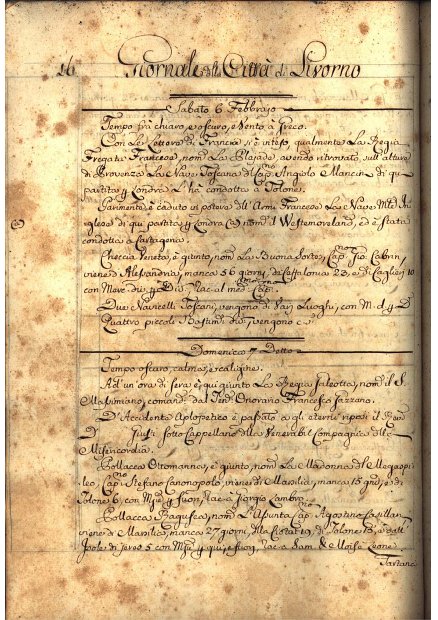 16 Giornale della Città di Livorno
Sabato 6 Febbrajo
Tempo frà chiaro, e oscuro, e Vento à Greco.
Con le Lettere di Francia si è inteso, qualmente La Regia
Fregata Francese, nom. La Plejade, avendo ritrovato, sull'alture
di Provenza La Nave Toscana di Cap. Angiolo Mancin di qui
partita p Londra L'hà condotta à Tolone.
Parimente, è caduta in potere dell'Armi Francese La Nave
glese di qui partita p Londra (a) nom. il Westmoreland, ed è stata
condotta à Cartagena.
(a)
Checcia Veneta, è giunto, nom. La Buona Sorte, Cap. Gio.
viene d'Alessandria, manca 56 giorni, di Cefalonia 23, e di Caglieri 10
con Merc. div. p Div. Rac. al med. Cap.
Due Navicelli Toscani, vengono di Varj Luoghi, con M. d. p D
Quattro piccoli Bastim. div. vengono
Domenica 7 Detto
Tempo oscuro, calma, e caligine.
Ad un'ora di sera è qui giunto La Regia Galeotta, nom. il S.
Masimiano, comand. dal Onorario Francesco
D'Accidente Aplopetico è passato a gli eterni riposi il
D Giusti sotto Cappellano della Venerabil Compagnia della
Misericordia.
Pollacco Ottomanno, è giunto, nom. La Madonna di
leo, Cap. Stefano viene di Marsilia, manca 15 gni, e di
Tolone 6, con p fuori, rac. à Giorgio
Pollacca Ragusea, nom. L'Asunta Cap. Agostino
viene di Marsilia, manca 27 giorni, della Ciotat 19, di Tolone 8, e dall'
Isole di Jeres 5 con p qui, e fuori, rac. a Sam. & Moise Leone.
Tartana